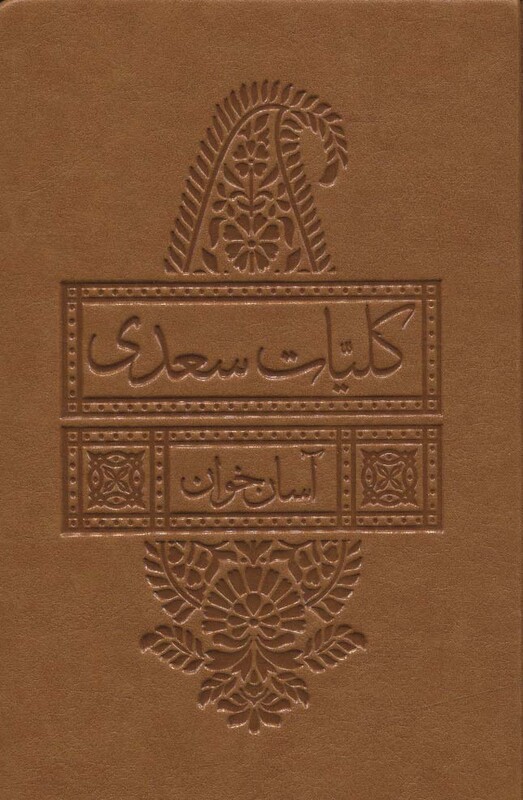 کلیّات سعدی
آسان خوان